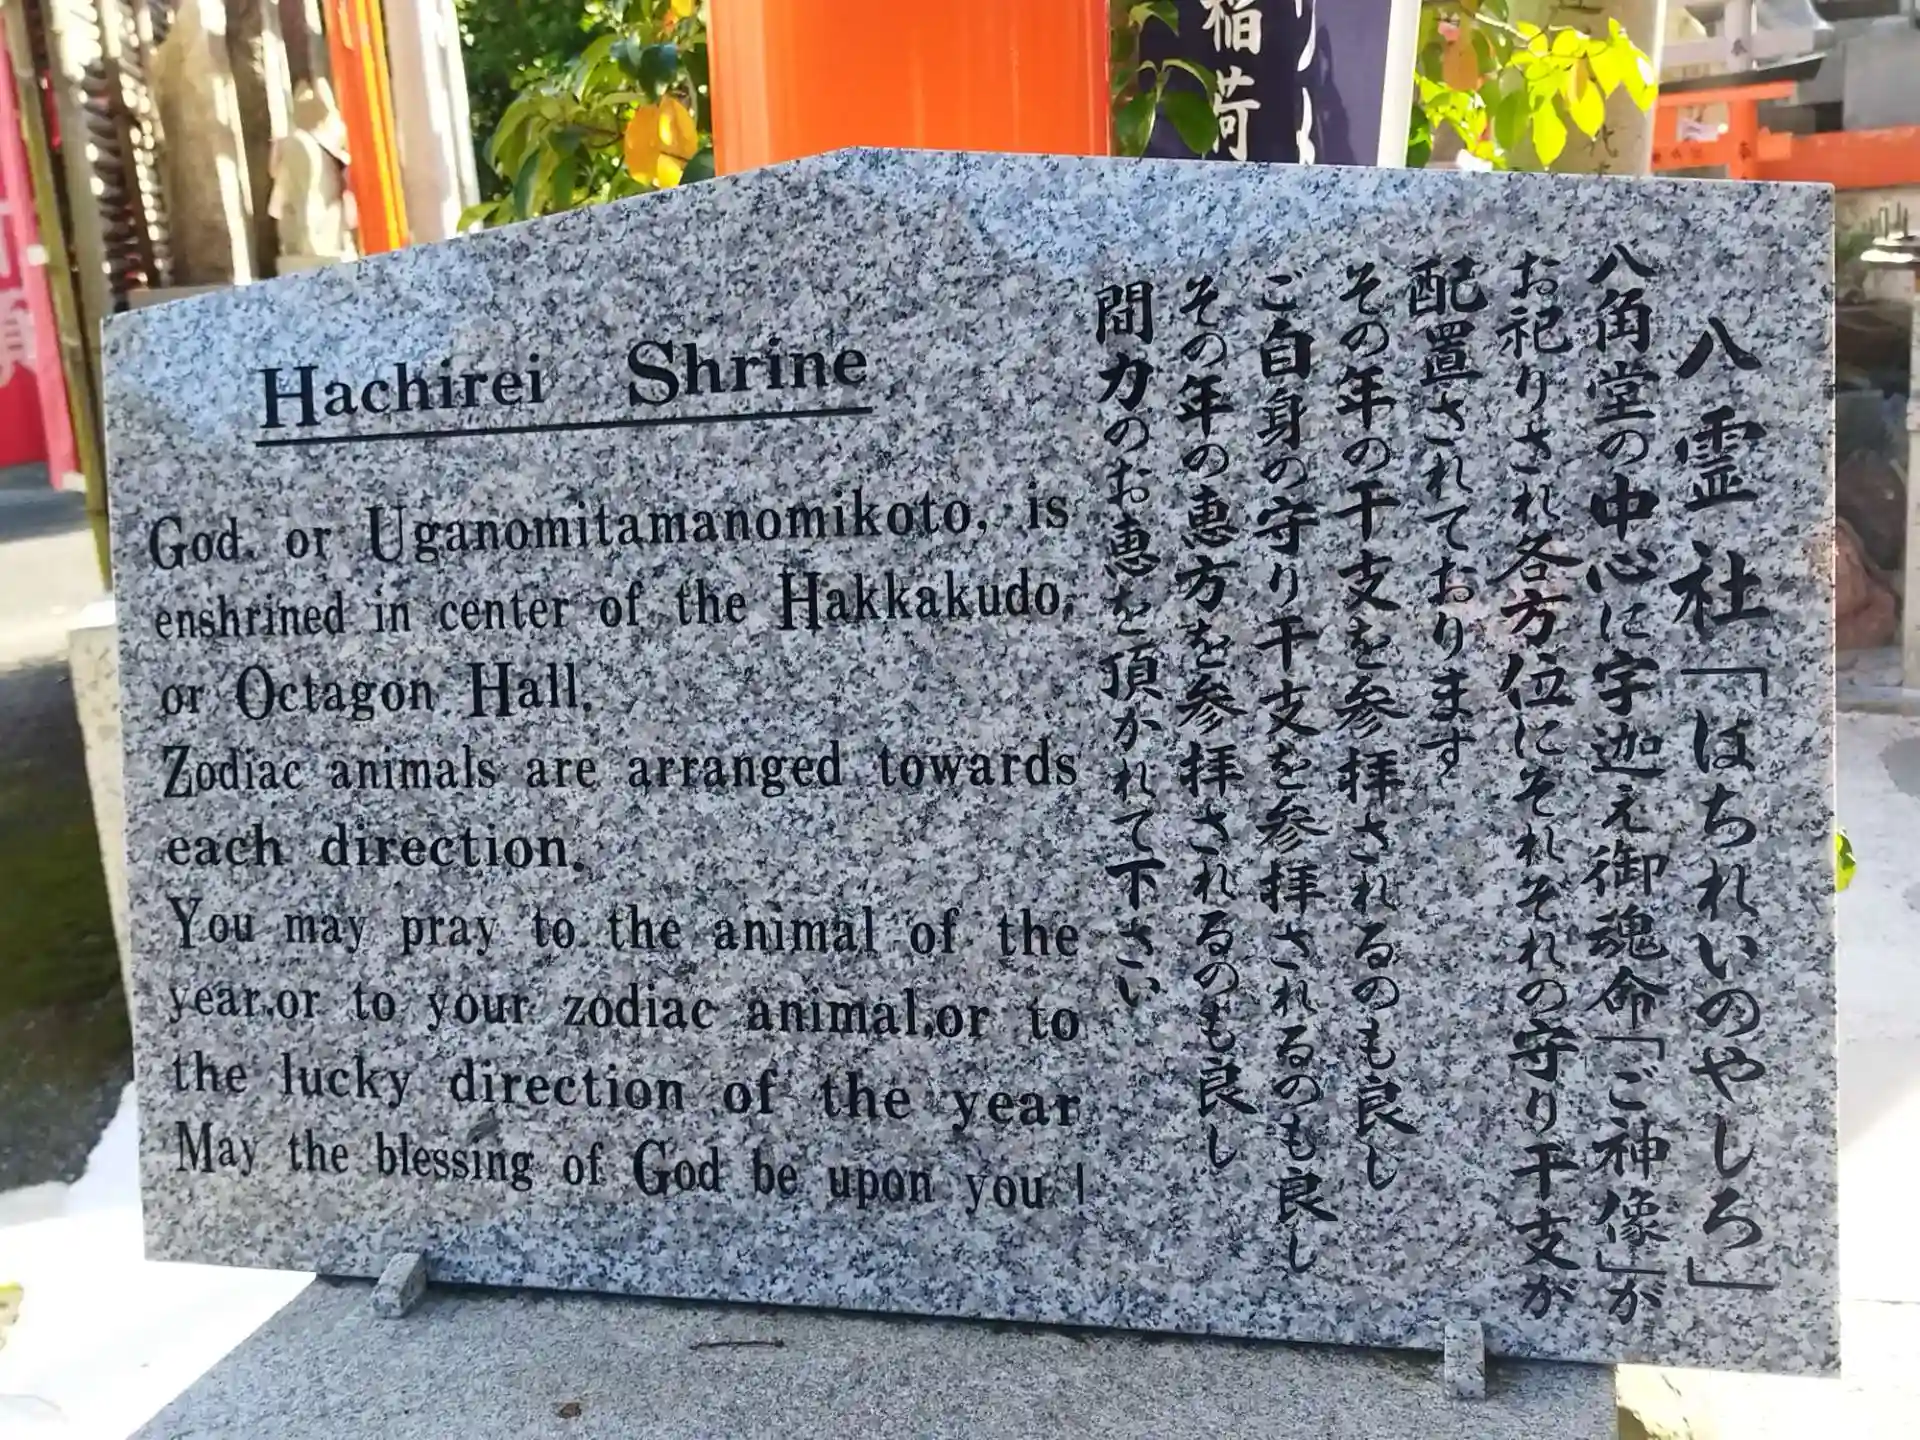 Hachirei Shrine
God, or Uganomitamanomikoto, is
enshrined in center of the Hakkakudo,
or Octagon Hall.
Zodiac animals are arranged towards
each direction.
You may pray to the animal of the
year,or to your zodiac animal,or to
the lucky direction of the year
May the blessing of God be upon you !
八霊社「はちれいのやしろ」
八角堂の中心に宇迦え御魂命「ご神像」が
お祀りされ各方位にそれぞれの守り干支が
配置されております
その年の干支を参拝されるのも良し
ご自身の守り干支を参拝されるのも良し
その年の恵方を参拝されるのも良し
間力のお恵を頂かれて下さい
稲荷